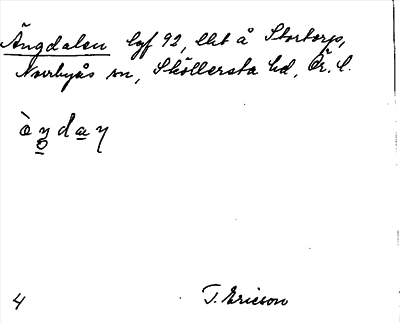 Ängdalen lgf 92, lht å Stortorp,
Norrbyås sn, Sköllersta hd, Ör. l.
4 T. Ericson